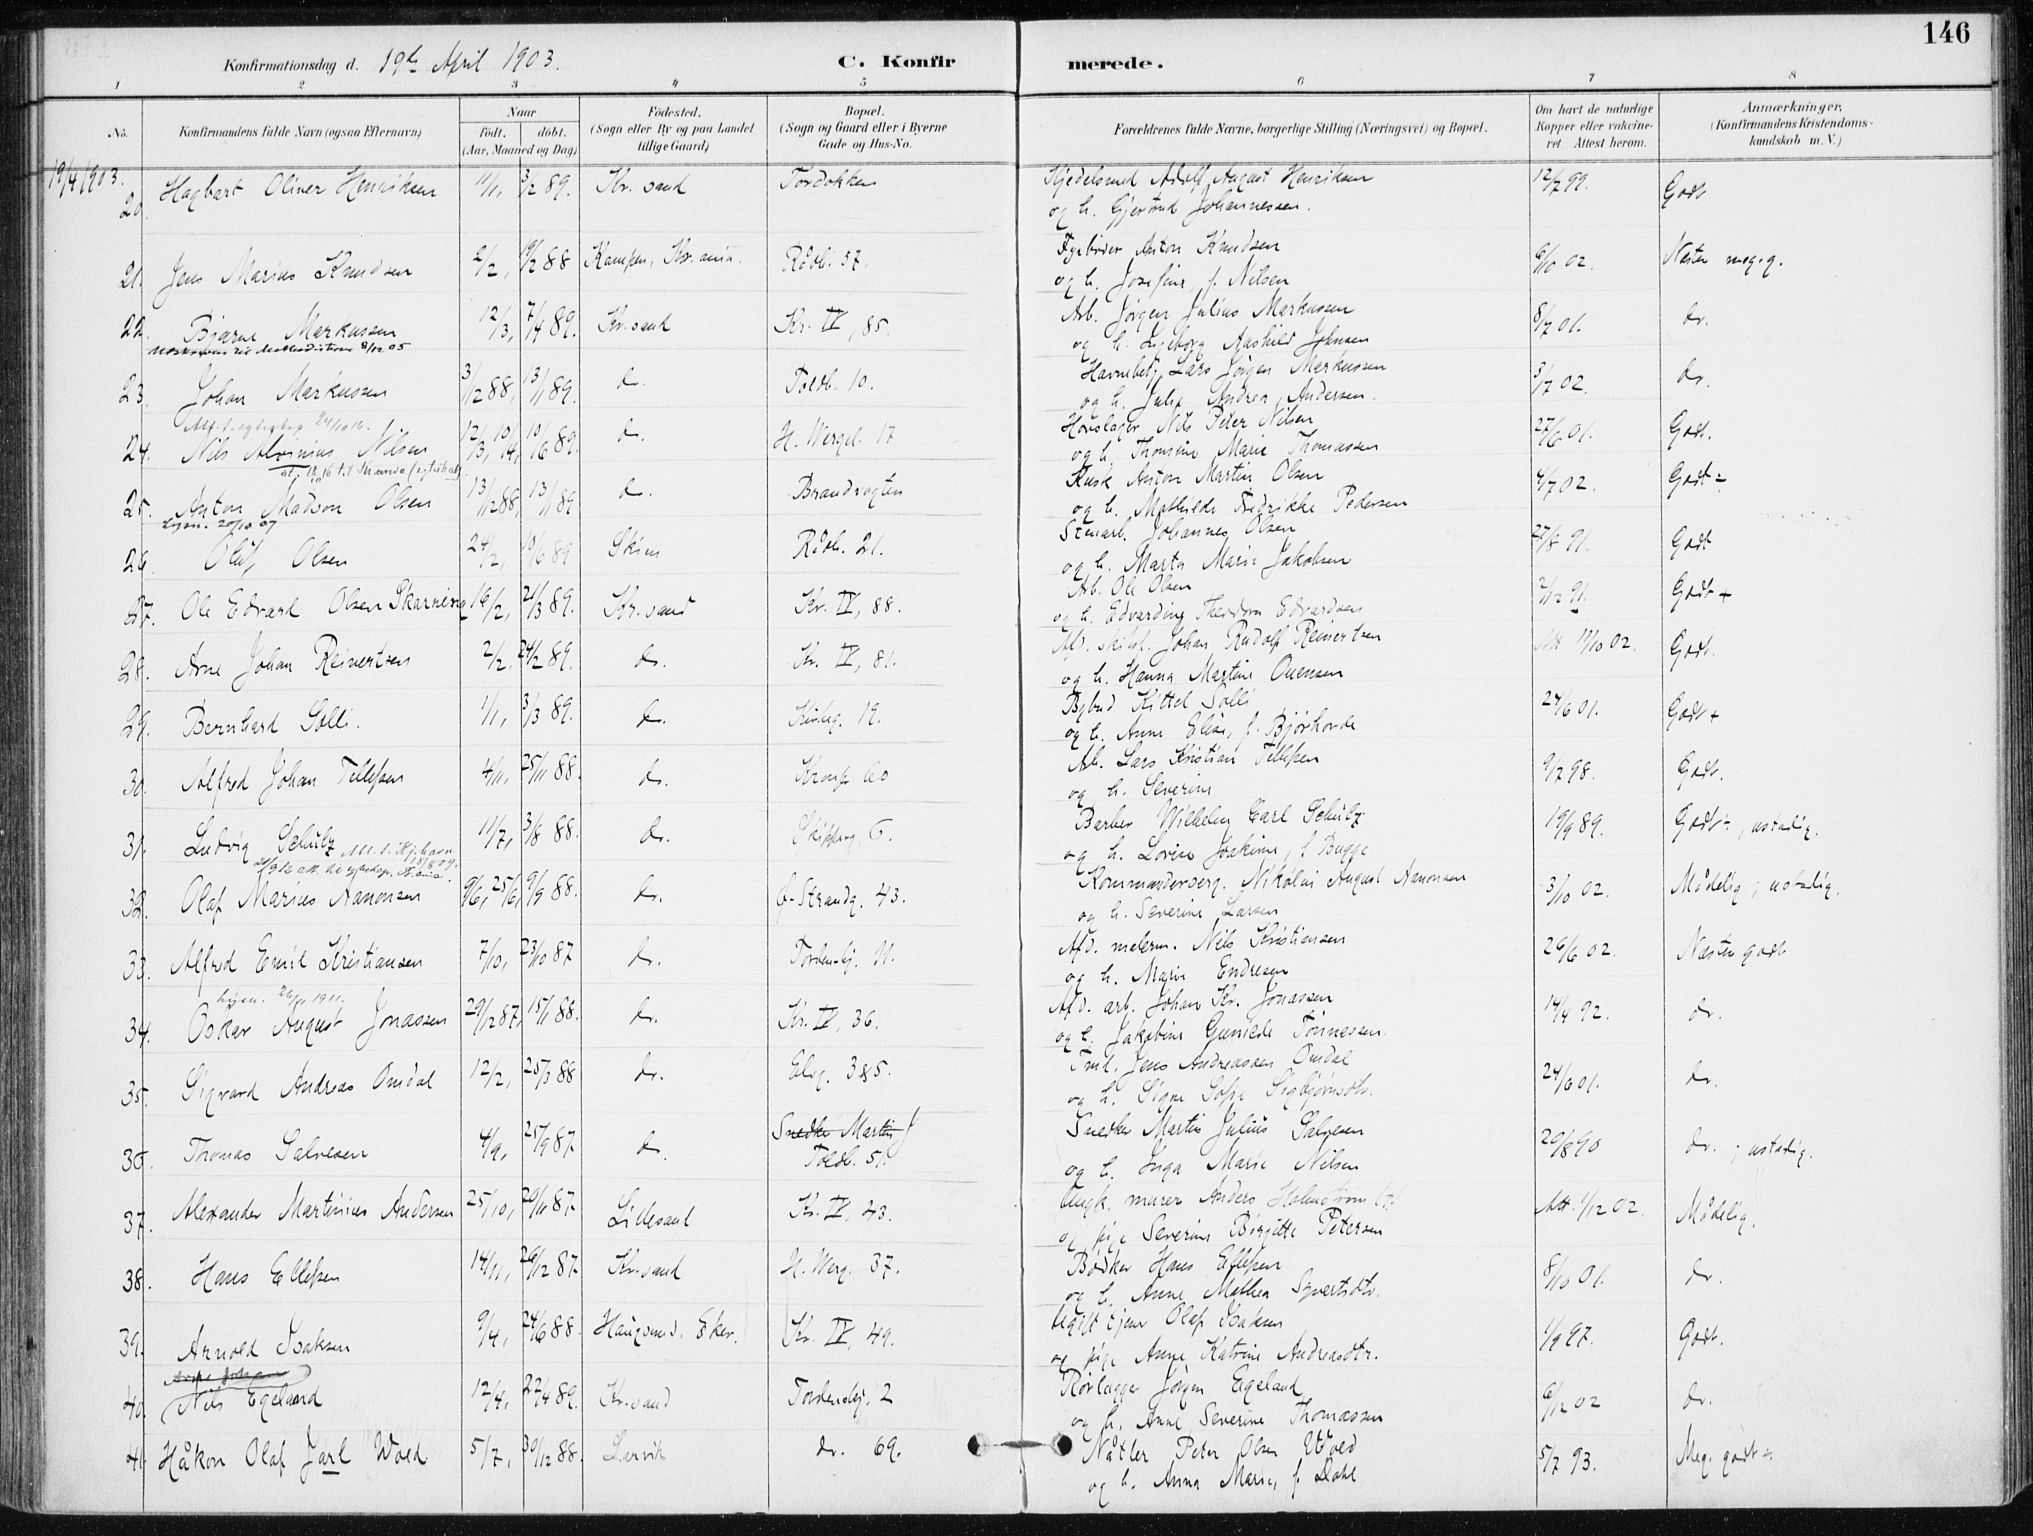 146
Konfirmationsdag d. 19de April 1903.
C. Konfirmerede.
1 2 3 4 5 6 7 8
No. Konfirmandens fulde Navn (ogsaa Efternavn) Naar født. døbt. (Aar, Maaned og Dag) Fødested. (Sogn eller By og paa Landet tillige Gaard) Bopæl. (Sogn og Gaard eller i Byerne Gade og Hus-No. Forældrenes fulde Navne, borgerlige Stilling (Næringsvei) og Bopæl. Om havt de naturlige Kopper eller vakcineret. Attest herom. Anmærkninger. (Konfirmandens Kristendomskundskab m. V.)
19/4 1903.
20. Hagbart Oliver Henriksen 11/1, 3/2 89. Kr.sand Kjedelsmed Adolf August Henriksen 12/7 99. Godt
og h. Gjertrud Johannessen.
21. Jens Marius Knudsen 2/2, 19/2 88 Kampen, Kr.ania. Rådh. 37. Fyrbøder Anton Knudsen 6/10 02. Næsten meg. g.
og h. Josefine, f. Nilsen
22. Bjarne Markussen 12/3, 7/4 89. Kr.sand Kr. IV, 85. Arb. Jørgen Julius Markussen 8/7 01. do.
og h. Ingeborg Aashild Johnsen
23. Johan Markussen 3/12 88, 13/1 89. do. Toldb. 10. Havnebetj. Lars Jørgen Markussen 3/7 02. do.
og h. Julie Andrea Andersen.
24. Nils Alvinius Nilsen 12/3, 10/14, 10/16 89. do. H. Wergel. 17 Hovslager Nils Peter Nilsen 27/6 01. Godt.
og h. Thomine Marie Thomassen
25. Anton Madson Olsen 13/12 88, 13/1 89 do. Brandvagten Kusk Anton Martin Olsen 4/7 02. Godt ÷
lysn. 20/10 07
og h. Mathilde Fredrikke Pedersen
26. Oluf Olsen 24/2, 10/6 89 Rådh. 21. Stenarb. Johannes Olsen 27/8 91. Godt
og h. Marta Marie Jakobsen
27. Ole Edvard Olsen Skarning 16/2, 21/3 89. Kr.sand Kr. IV, 88. Arb. Ole Olsen 2/12 91. Godt +
og h. Edvardine Theodora Edvardsen
28. Arne Johan Reinertsen 2/2, 24/2 89. do. Kr. IV, 81. Afd. Johan Rudolf Reinertsen Att. 17/10 02. Godt.
og h. Hanna Martine Ouensen
29. Bernhard Solli. 1/1, 3/3 89. do. Kirkeg. 19. Bybud Kittel Solli 24/6 01. Godt +
og h. Anne Elise, f. Bjørhovde
30. Alfred Johan Tellefsen 4/11, 25/11 88. do. Kronp. 60 Arb. Lars Kristian Tellefsen 9/7 98. Godt.
og h. Severine
31. Ludvig Schulz 11/7, 3/8 88. do. Skipperg. 6. Barber Wilhelm Carl Schulz 19/9 89. Godt ÷, ustadig.
og h. Lovise Joakime, f. Bugge
32. Olaf Marius Aanonsen 9/6, 25/6, 9/9 88. do. Ø-Strandg. 43. Kommandersergt. Nikolai August Aanonsen 3/10 02. Mådelig; ustadig.
og h. Severine Larsen
33. Alfred Emil Kristiansen 7/10, 23/10 87 do. Tordenskj. 11. Afd. malerm. Nils Kristiansen 26/6 02. Næsten godt
og h. Marie Endresen
34. Oskar August Jonassen 29/12 87, 15/1 88. do. Kr. IV, 36. Afd. arb. Johan Kr. Jonassen 14/4 92. do.
og h. Jakobine Gunilde Tønnessen.
35. Sigvard Andreas Omdal 12/2, 25/3 88 do. Elvg. 385. Tml. Jens Andreassen Omdal 24/6 01. do.
og h. Signe Sofie Sigbjørnsdtr.
36. Thomas Salvesen 4/9, 25/9 87 do. Snedker Martin J Snedker Martin Julius Salvesen 20/8 90 do.; ustadig.
Toldb. 51.
og h. Inga Marie Nilsen
37. Alexander Martinius Andersen 25/10, 20/11 87. Lillesand Kr. IV, 43. Ungk. murer Anders Holmstrøm (?) Att. 1/12 02. Mådelig.
og pige Severine Birgitte Petersen
38. Hans Ellefsen 14/11, 26/12 87. Kr.sand H. Werg. 37. Bødker Hans Ellefsen 8/10 01. do.
og h. Anne Mathea Syvertsdtr.
39. Arnold Isaksen 9/4, 24/6 88. Haugsund, Eker. Kr. IV, 49. Ugift tjener Olaf Isaksen 1/9 97. Godt.
og pige Anne Katrine Andreasdtr.
40. Nils Egeland 12/4, 22/4 89. Kr.sand Tordenskj. 2 Rørlægger Jørgen Egeland 6/12 02 do.
og h. Anne Severine Thomassen
41. Håkon Olaf Jarl Wold 5/7, 30/12 88. Lervik do. 69. Nåtler Peter Olsen Wold 5/7 93. Meg. godt ÷.
og h. Anna Marie, f. Dahl